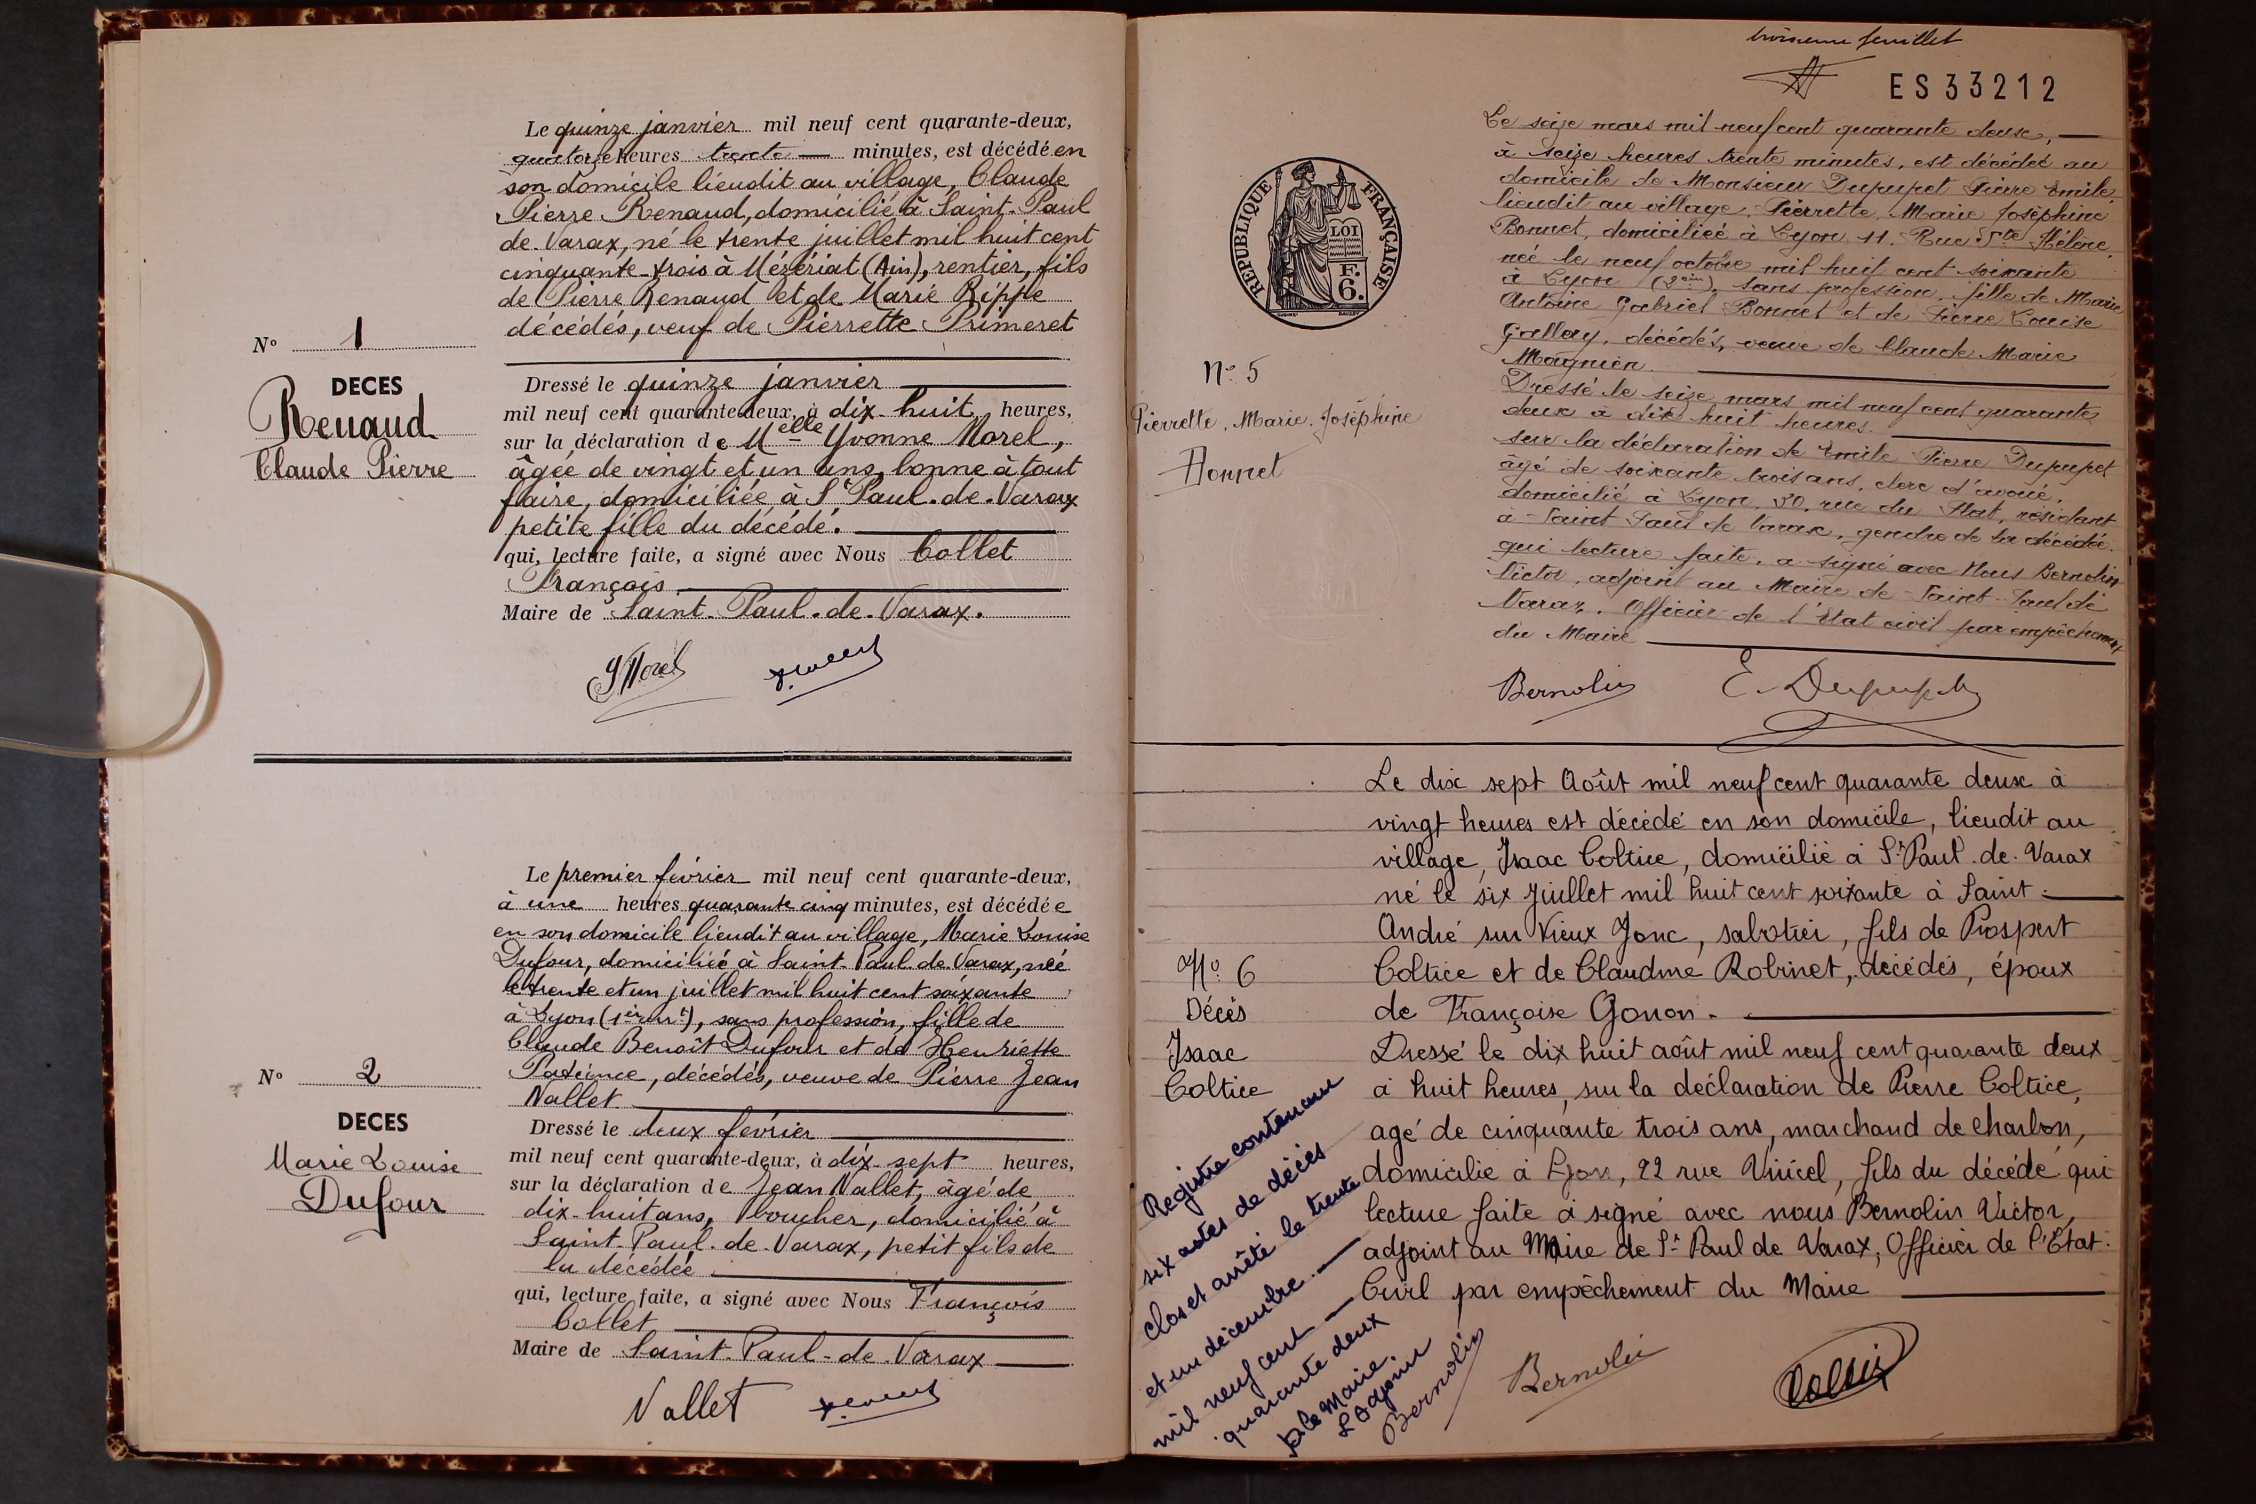 Le quinze janvier mil neuf cent quarante-deux,
quatorze heures trente minutes, est décédé en
son domicile lieudit au village, Claude
Pierre Renaud, domicilié à Saint-Paul
de-Varax, né le trente juillet mil huit cent
cinquante-trois à Mézériat (Ain), rentier, fils
de Pierre Renaud et de Marie Rippe
décédés, veuf de Pierrette Primeret
No 1
DECES
Renaud
Claude Pierre
Dressé le quinze janvier
mil neuf cent quarante-deux, à dix-huit heures,
sur la déclaration de Melle Yvonne Morel,
âgée de vingt et un ans, bonne à tout
faire, domiciliée à St Paul-de-Varax
petite fille du décédé.
qui, lecture faite, a signé avec Nous Collet
François
Maire de Saint-Paul-de-Varax.
YMorel
Le premier février mil neuf cent quarante-deux,
à une heures quarante cinq minutes, est décédée
en son domicile lieudit au village, Marie Louise
Dufour, domiciliée à Saint-Paul-de-Varax, née
le trente et un juillet mil huit cent soixante
à Lyon (1er mt), sans profession, fille de
Claude Benoît Dufour et de Henriette
décédés, veuve de Pierre Jean
Nallet
No 2
DECES
Marie Louise
Dufour
Dressé le deux février
mil neuf cent quarante-deux, à dix-sept heures,
sur la déclaration de Jean Nallet, âgé de
dix-huit ans, boucher, domicilié à
Saint-Paul-de-Varax, petit fils de
la décédée
qui, lecture faite, a signé avec Nous François
Collet
Maire de Saint-Paul-de-Varax
Nallet
troisieme feuillet
ES33212
REPUBLIQUE FRANÇAISE
LOI
F.
6.
Le seize mars mil neuf cent quarante deux,
à seize heures trente minutes, est décédée au
domicile de Monsieur Dupupet Pierre Emile,
lieudit au village, Pierrette, Marie Joséphine
Bonnet, domiciliée à Lyon 11, Rue Ste Hélène,
née le neuf octobre mil huit cent soixante
à Lyon sans profession, fille de Marie
Antoine Gabriel Bonnet et de Pierre Louise
Gallay, décédés, veuve de Claude Marie
Magnien
No 5
Pierrette, Marie, Joséphine
Bonnet
Dressé le seize mars mil neuf cent quarante
deux à dix huit heures.
sur la déclaration de Emile Pierre Dupupet
âgé de soixante trois ans, clerc d'avoué,
domicilié à Lyon, 30, rue du Plat, résidant
à Saint Paul de Varax, gendre de la décédée.
qui lecture faite, a signé avec Nous Bernolin
Victor, adjoint au Maire de Saint-Paul de
Varax. Officier de l'Etat civil par empêchement
du Maire
Bernolin
E. Dupupet
Le dix sept Août mil neuf cent quarante deux à
vingt heures est décédé en son domicile, lieudit au
village, Isaac Coltice, domicilié à St Paul-de-Varax
né le six juillet mil huit cent soixante à Saint-
André sur Vieux Jonc, sabotier, fils de Prospert
Coltice et de Claudine Robinet, décédés, époux
de Françoise Gonon.
No 6
Décès
Isaac
Coltice
Dressé le dix huit août mil neuf cent quarante deux
à huit heures, sur la déclaration de Pierre Coltice,
agé de cinquante trois ans, marchand de charbon,
domicilié à Lyon, 22 rue fils du décédé qui
lecture faite a signé avec nous Bernolin Victor,
adjoint au Maire de St Paul de Varax, Officier de l'Etat-
Civil par empêchement du Maire
Bernolin
Coltice
Registre contenant
six actes de décès
clos et arrêté le trente
et un décembre
mil neuf cent
quarante deux
p le Maire.
L'Adjoint
Bernolin